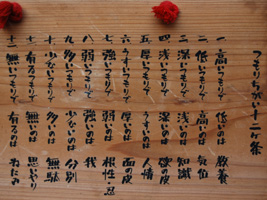 つもりちがい十二ヶ条
一 高いつもりで 低いのは 教養
二 低いつもりで 高いのは 気位
三 深いつもりで 浅いのは 知識
四 浅いつもりで 深いのは 欲の皮
五 厚いつもりで うすいのは 人情
六 うすいつもりで 厚いのは 面の皮
七 強いつもりで 弱いのは 根性・忍
八 弱いつもりで 強いのは 我
九 多いつもりで 少ないのは 分別
十 少ないつもりで 多いのは 無駄
十一 有るつもりで 無いのは 思いやり
十二 無いつもりで 有るのは ねたみ